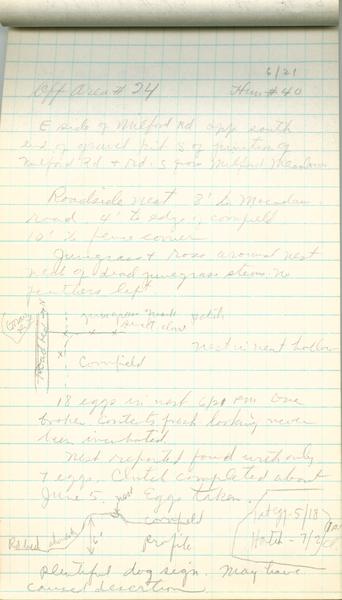 6/21
Off Area # 24 Hen # 40
E side of Milford Rd opp south
end of gravel pit S of junction of
Milford Rd & rd. S from Milford Meadows
Roadside nest 3' to Macadam
road 4' to edge of cornfield
10' to fence corner
Junegrass & ross around nest
nest of dead junegrass stems. no
feathers left
Gravel
Pit
Milford Rd
junegrass mostly patch
sweet clov
Nest in neat hollow
Cornfield
18 eggs in nest 6/21 PM One
broken. Contents fresh looking never
been incubated
Nest reported found with only
7 eggs. Clutch completed about
June 5. Eggs taken.
nest
1st egg - 5/18
Hatch - 7/2
Roadbed ditch
6'
cornfield
profile
Plentiful dog sign. May have
caused desertion